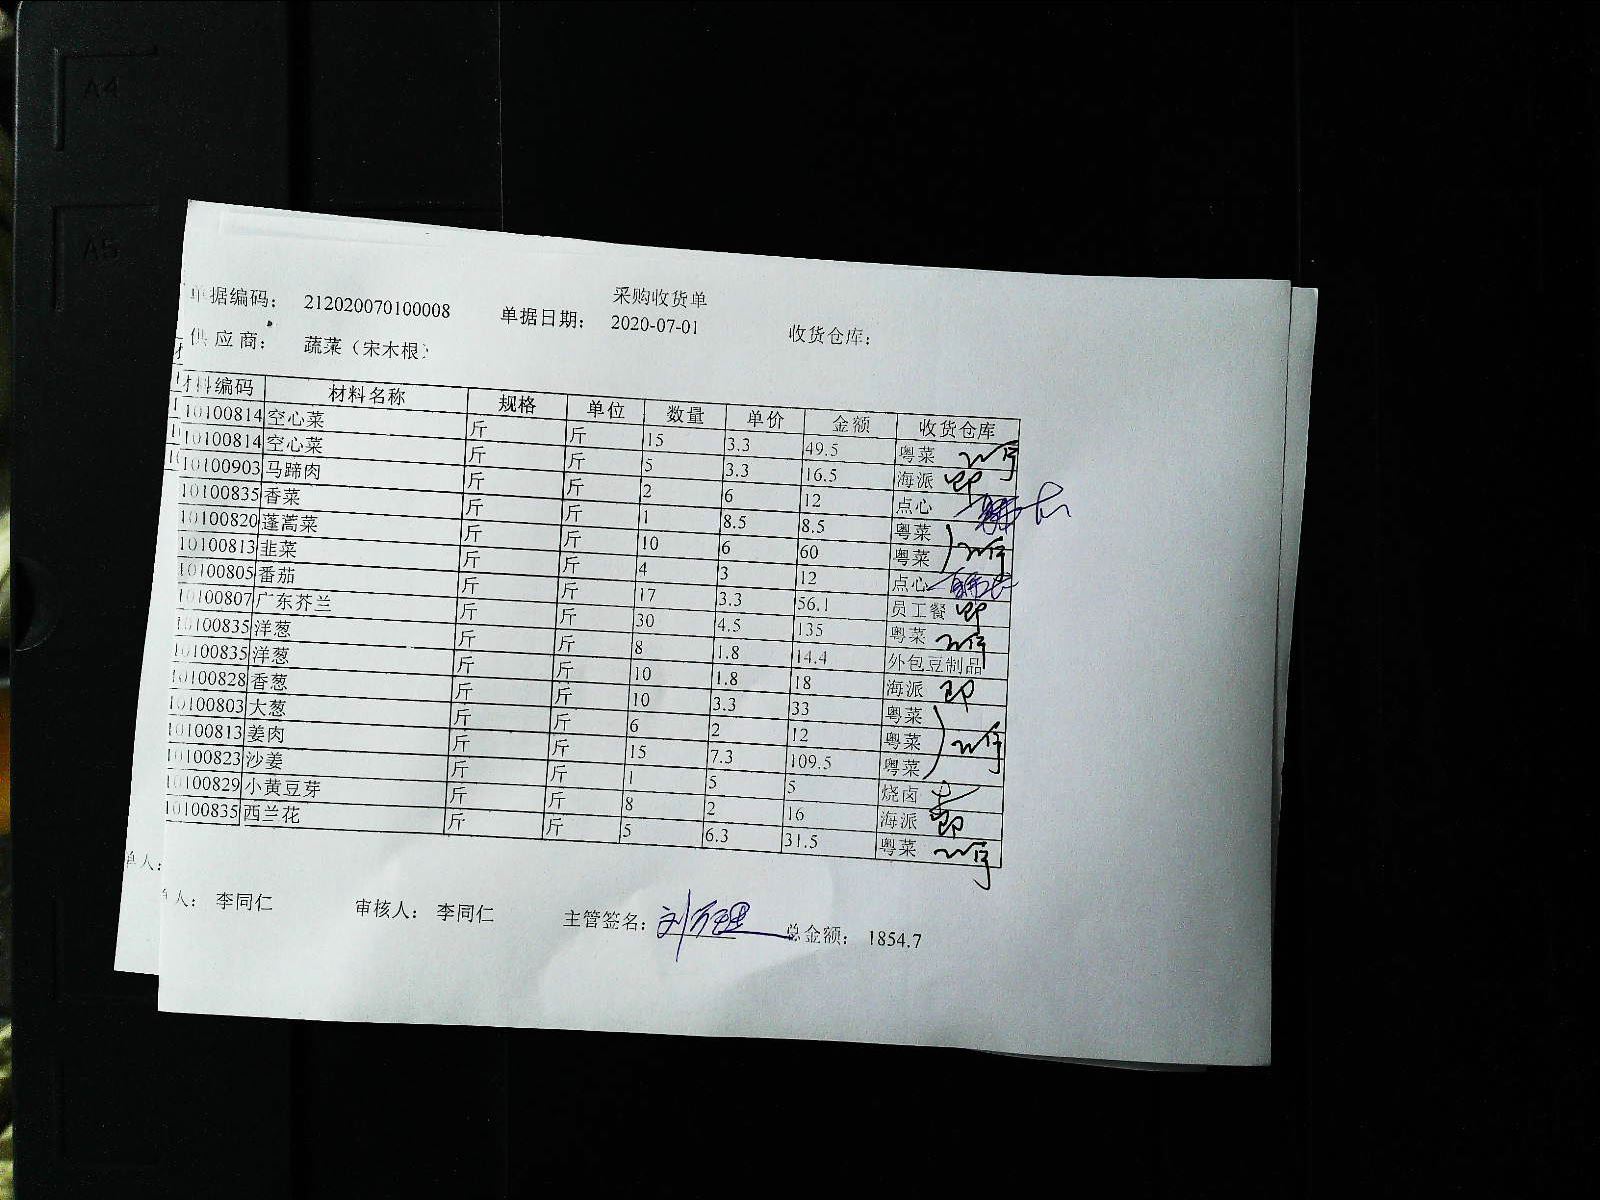 A4
A5
采购收货单
单据编码： 212020070100008 单据日期： 2020-07-01 收货仓库：
供应商： 蔬菜（宋木根）
材料编码 材料名称 规格 单位 数量 单价 金额 收货仓库
10100814 空心菜 斤 斤 15 3.3 49.5 粤菜
10100814 空心菜 斤 斤 5 3.3 16.5 海派
10100903 马蹄肉 斤 斤 2 6 12 点心
10100835 香菜 斤 斤 1 8.5 8.5 粤菜
10100820 蓬蒿菜 斤 斤 10 6 60 粤菜
10100813 韭菜 斤 斤 4 3 12 点心
10100805 番茄 斤 斤 17 3.3 56.1 员工餐
10100807 广东芥兰 斤 斤 30 4.5 135 粤菜
10100835 洋葱 斤 斤 8 1.8 14.4 外包豆制品
10100835 洋葱 斤 斤 10 1.8 18 海派
10100828 香葱 斤 斤 10 3.3 33 粤菜
10100803 大葱 斤 斤 6 2 12 粤菜
10100813 姜肉 斤 斤 15 7.3 109.5 粤菜
10100823 沙姜 斤 斤 1 5 5 烧卤
10100829 小黄豆芽 斤 斤 8 2 16 海派
10100835 西兰花 斤 斤 5 6.3 31.5 粤菜
单人：
人： 李同仁 审核人： 李同仁 主管签名： 总金额： 1854.7